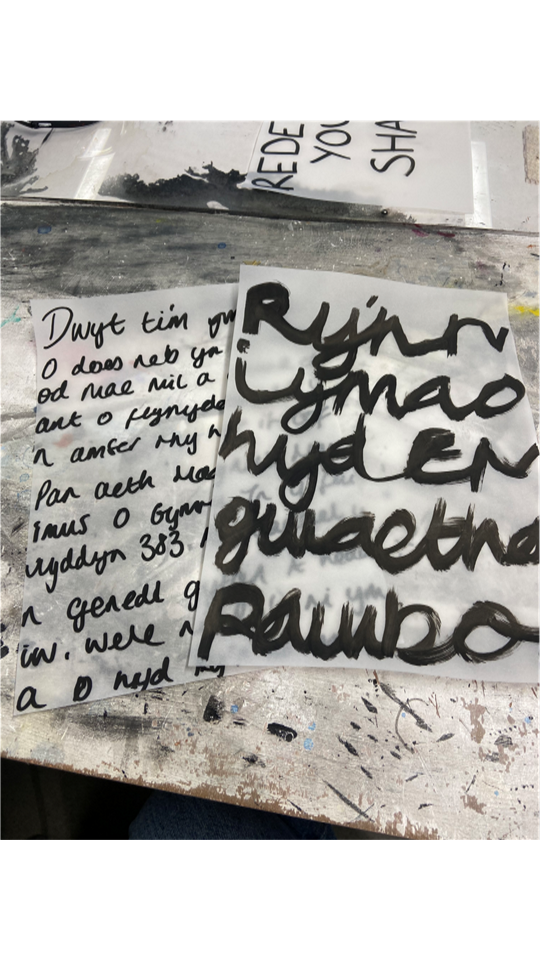 REDE
YOU
SHA
Dwyt ti'm
O does neb yn
od mae mil a
ant o flynyddo
n amser rhy h
Pan aeth Mac
imus O Gymr
wyddyn 383
n Genedl g
iw. wele n
a O hyd
Ry'n n
i yma o
hyd Er
gwaetha
Pawb o